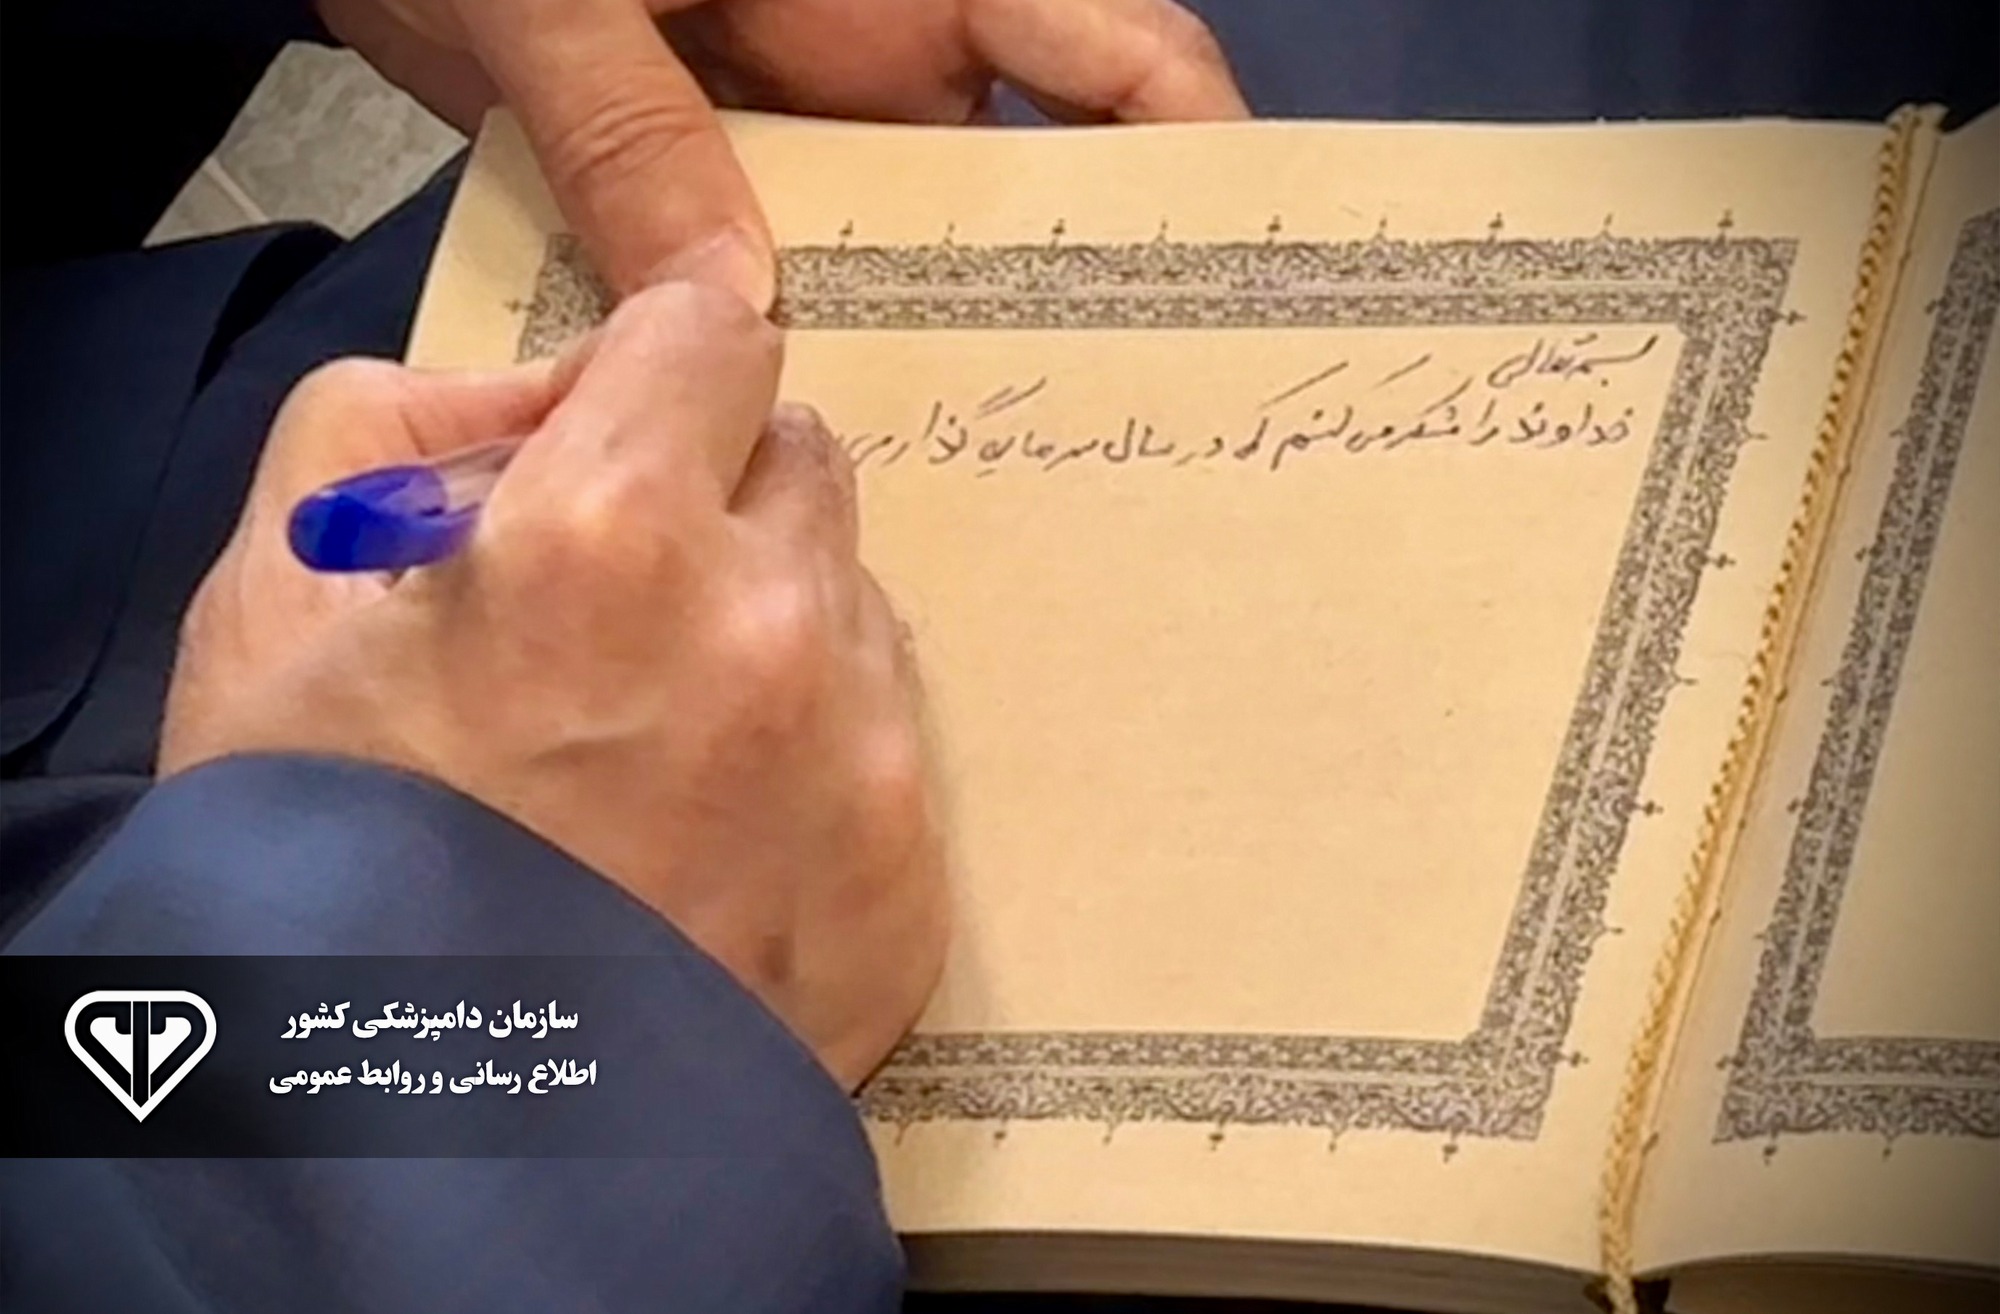 بسمه تعالی
خداوند را شکر می کنیم که در سال سرمایه گذاری
سازمان دامپزشکی کشور
اطلاع رسانی و روابط عمومی